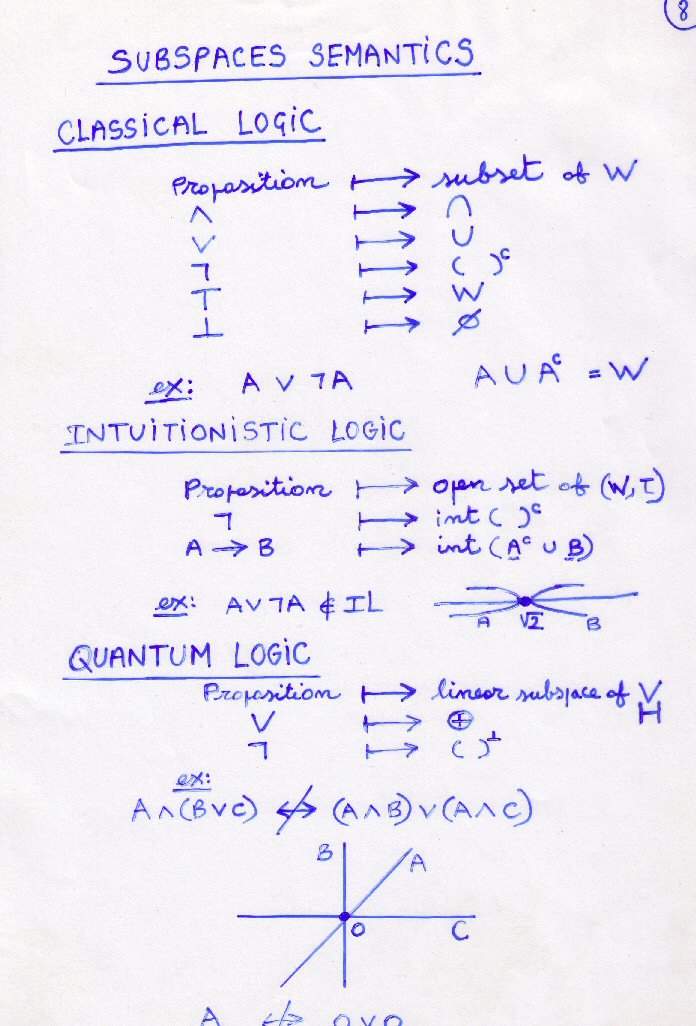 8
SUBSPACES SEMANTICS
CLASSICAL LOGIC
Proposition ⟼ subset of W
∧ ⟼ ∩
∨ ⟼ ∪
¬ ⟼ ( )ᶜ
⊤ ⟼ W
⊥ ⟼ ∅
ex: A ∨ ¬A A ∪ Aᶜ = W
INTUITIONISTIC LOGIC
Proposition ⟼ open set of (W, τ)
¬ ⟼ int ( )ᶜ
A → B ⟼ int (Aᶜ ∪ B)
ex: A ∨ ¬A ∉ IL
A √2 B
QUANTUM LOGIC
Proposition ⟼ linear subspace of V
H
∨ ⟼ ⊕
¬ ⟼ ( )^⊥
ex:
A ∧ (B ∨ C) ↮ (A ∧ B) ∨ (A ∧ C)
B A
O C
A ↮ O ∨ O